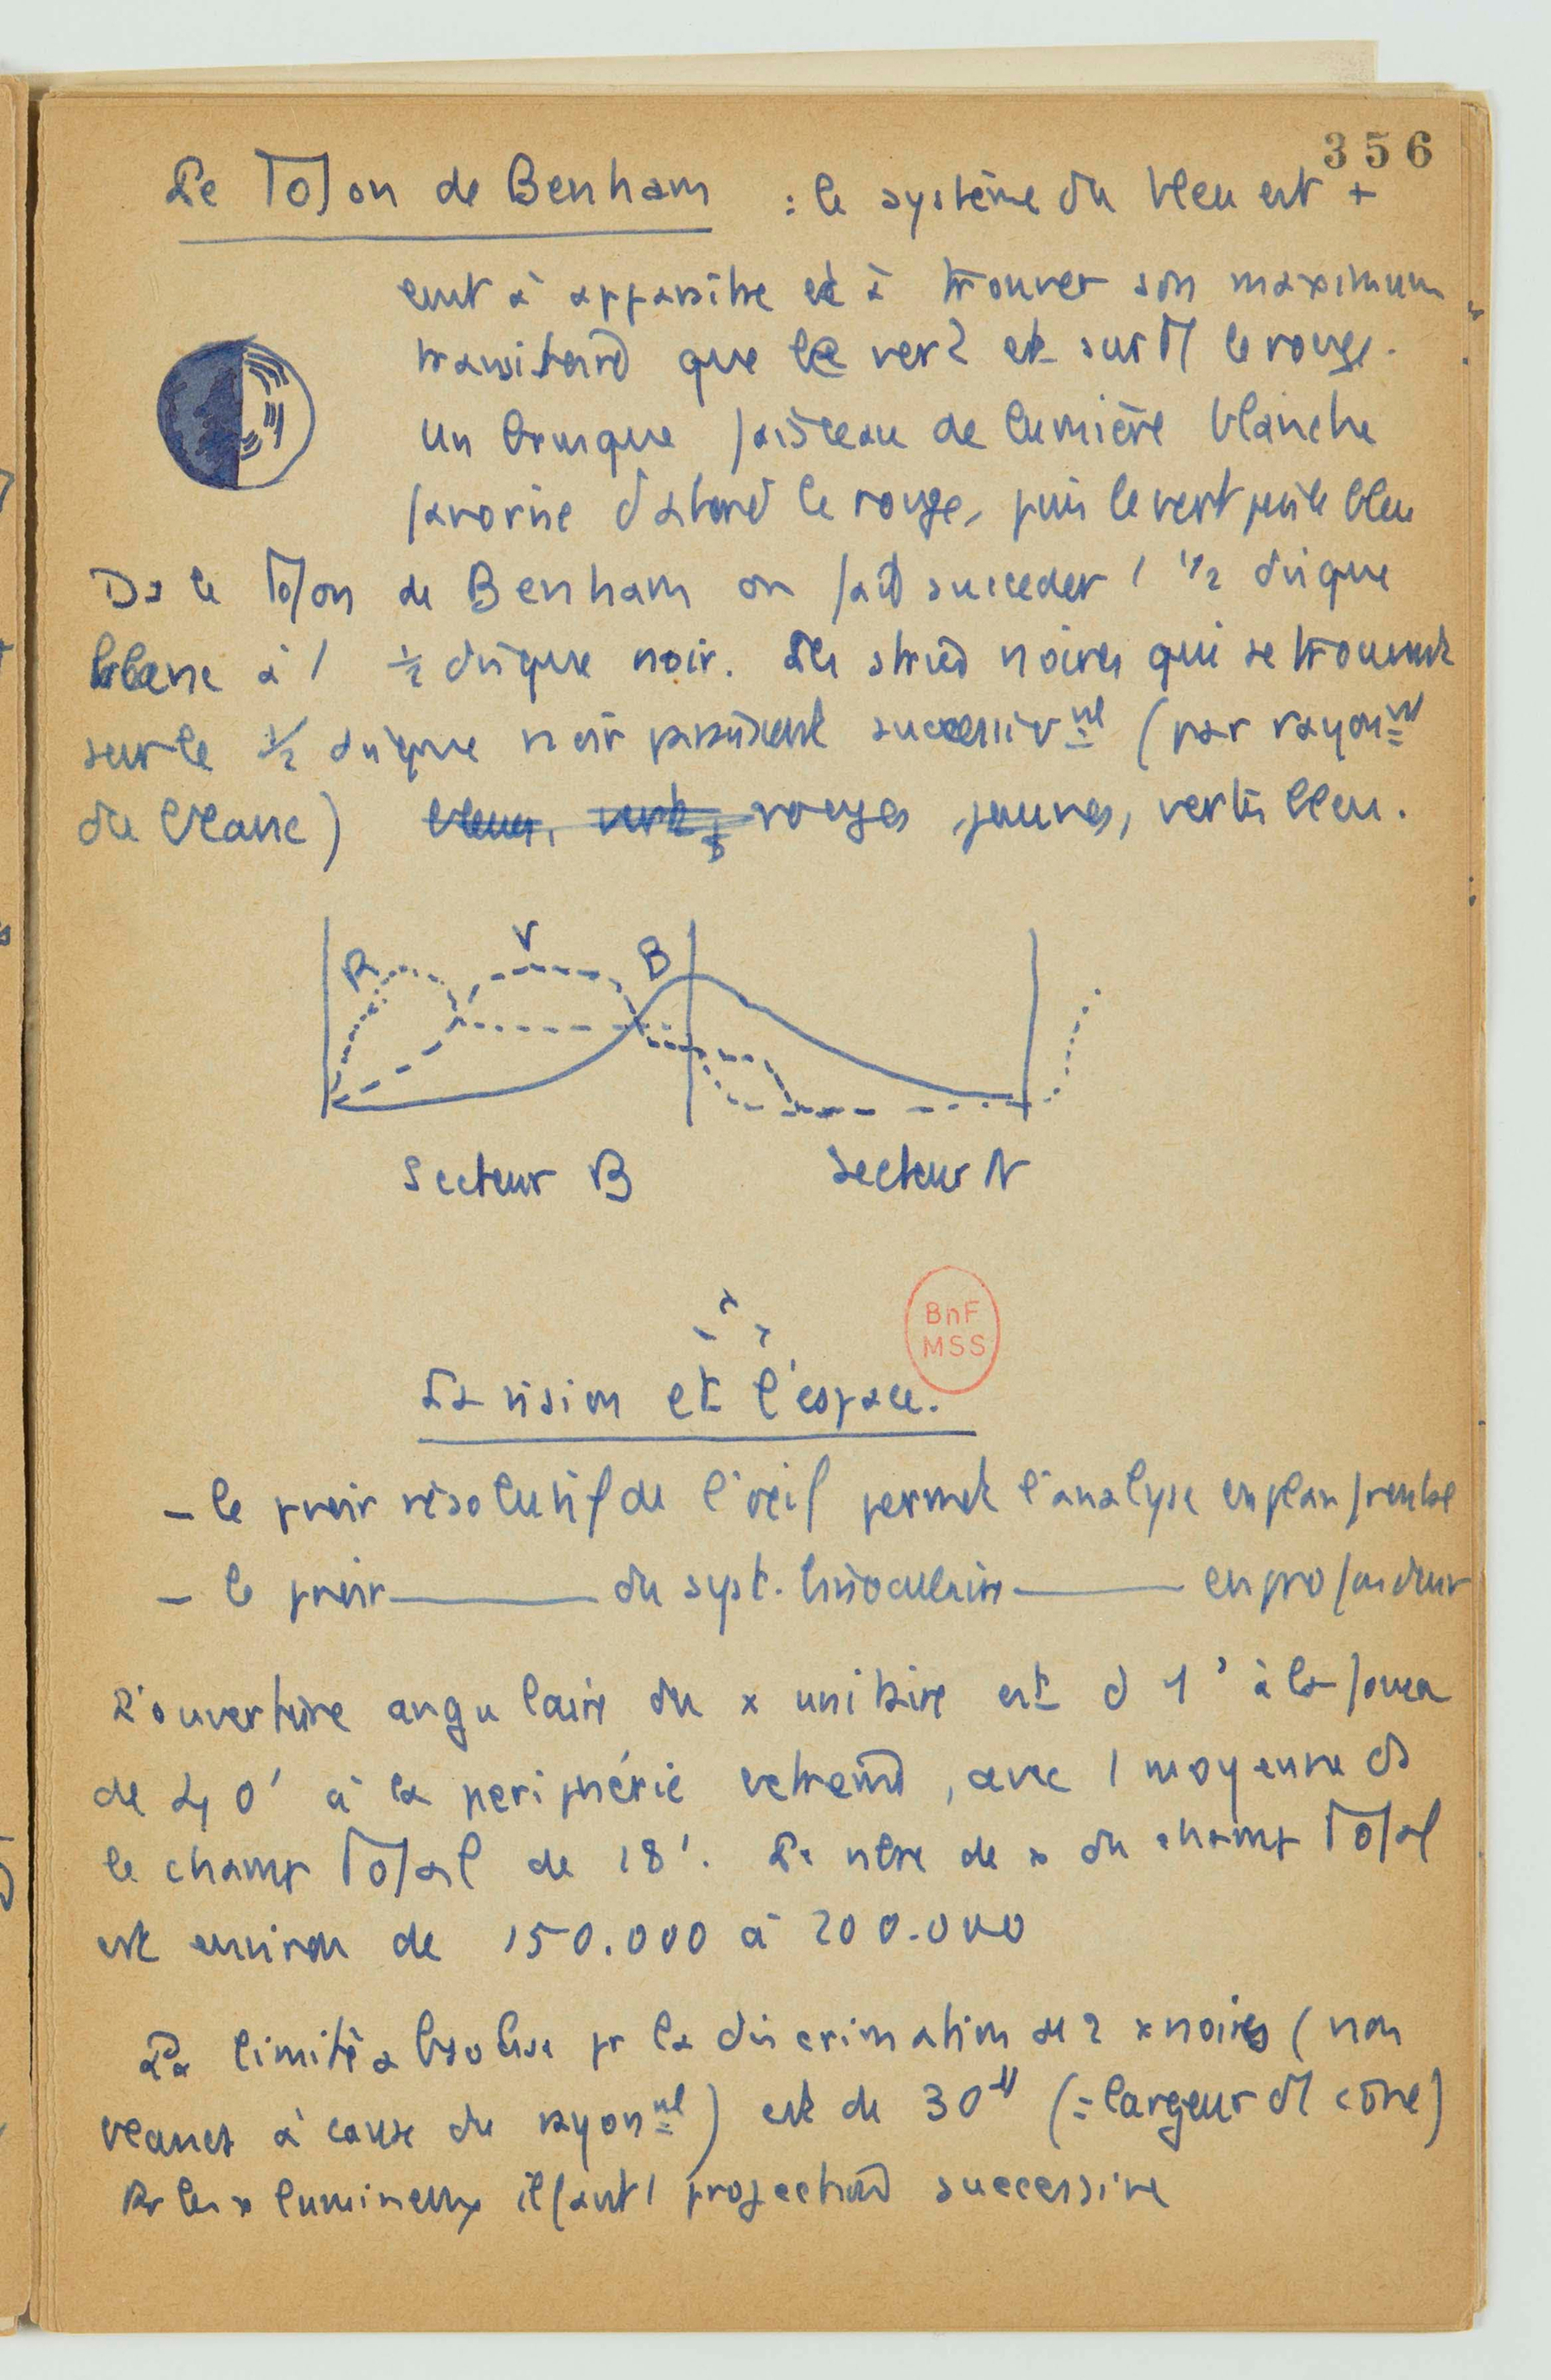 356
Le Toton de Benham : le système du bleu est +
lent à apparaitre et à trouver son maximum
transitoire que le vert et surtt le rouge.
Un brusque faisceau de lumière blanche
favorise d'abord le rouge, puis le vert puis le bleu
Ds le Toton de Benham on fait succeder 1 1/2 disque
blanc à 1 1/2 disque noir. Les stries noires qui se trouvent
sur le 1/2 disque noir paraissent successivnt (par rayonnt
du blanc) bleues, vertes, rouges jaunes, vertes bleu.
R V B
Secteur B Secteur N
BnF
MSS
La vision et l'espace.
– le pvoir résolutif de l'œil permet l'analyse en plan frontal
– le pvoir ——— du syst. binoculaire ——— en profondeur
L'ouverture angulaire du x unitaire est d 1' à la fovea
de 40' à la periphérie extreme, avec 1 moyenne ds
le champ Total de 18'. Le nbre de x du champ Total
est environ de 150.000 à 200.000
La limite absolue pr la discrimination de 2 x noires (non
blancs à cause du rayonnt) est de 30" (= largeur d1 cône)
Pr les x lumineux il faut 1 projection successive